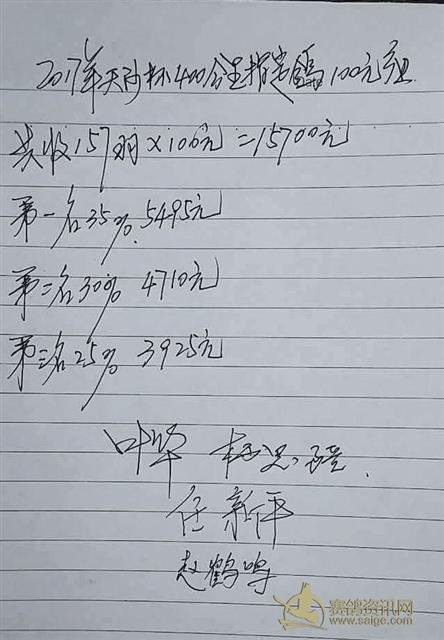 2017年天砂杯400公里指定鸽100元组
共收157羽×100元=15700元
第一名35%.5495元
第二名30% 4710元
第三名25% 3925元
叶华
任新平
赵鹤鸣
赛鸽资讯网
www.saige.com